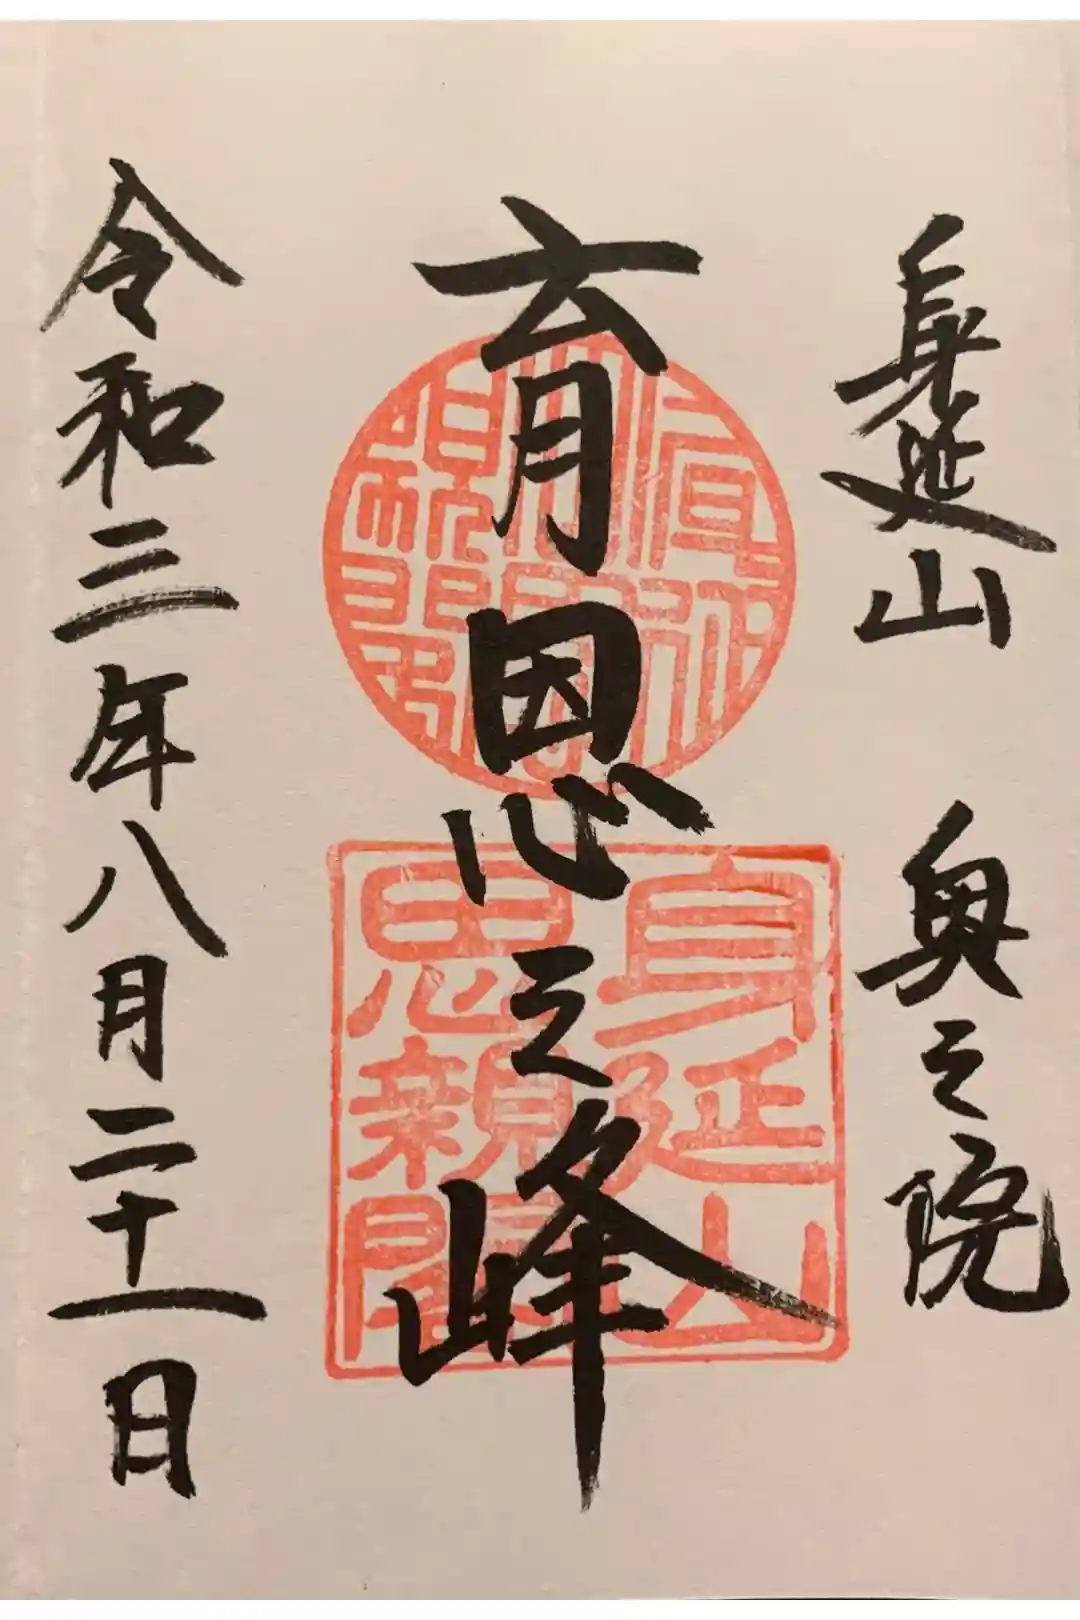 身延山　奥之院
育恩之峰
身延山
思親閣
令和三年八月二十一日